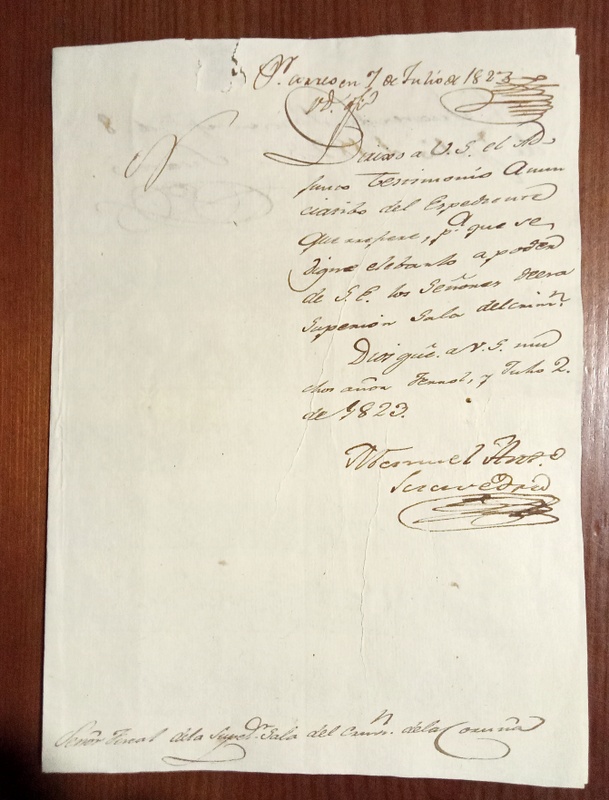 en 7 de Julio de 1823
Dirixo a V.S. el Ad-
junto testimonio Anun
ciatibo del Expediente
Que refiere, pa. que se
digne elebarlo a poder
de S.E. los Señores deesa
Superior Sala delcrimn.
Dios gue. a V.S. mu
chos años Ferrol, y Julio 2.
de 1823.
Manuel Anto.
Saavedra
Señor Fiscal dela Super. Sala del Crimn. dela Coruña